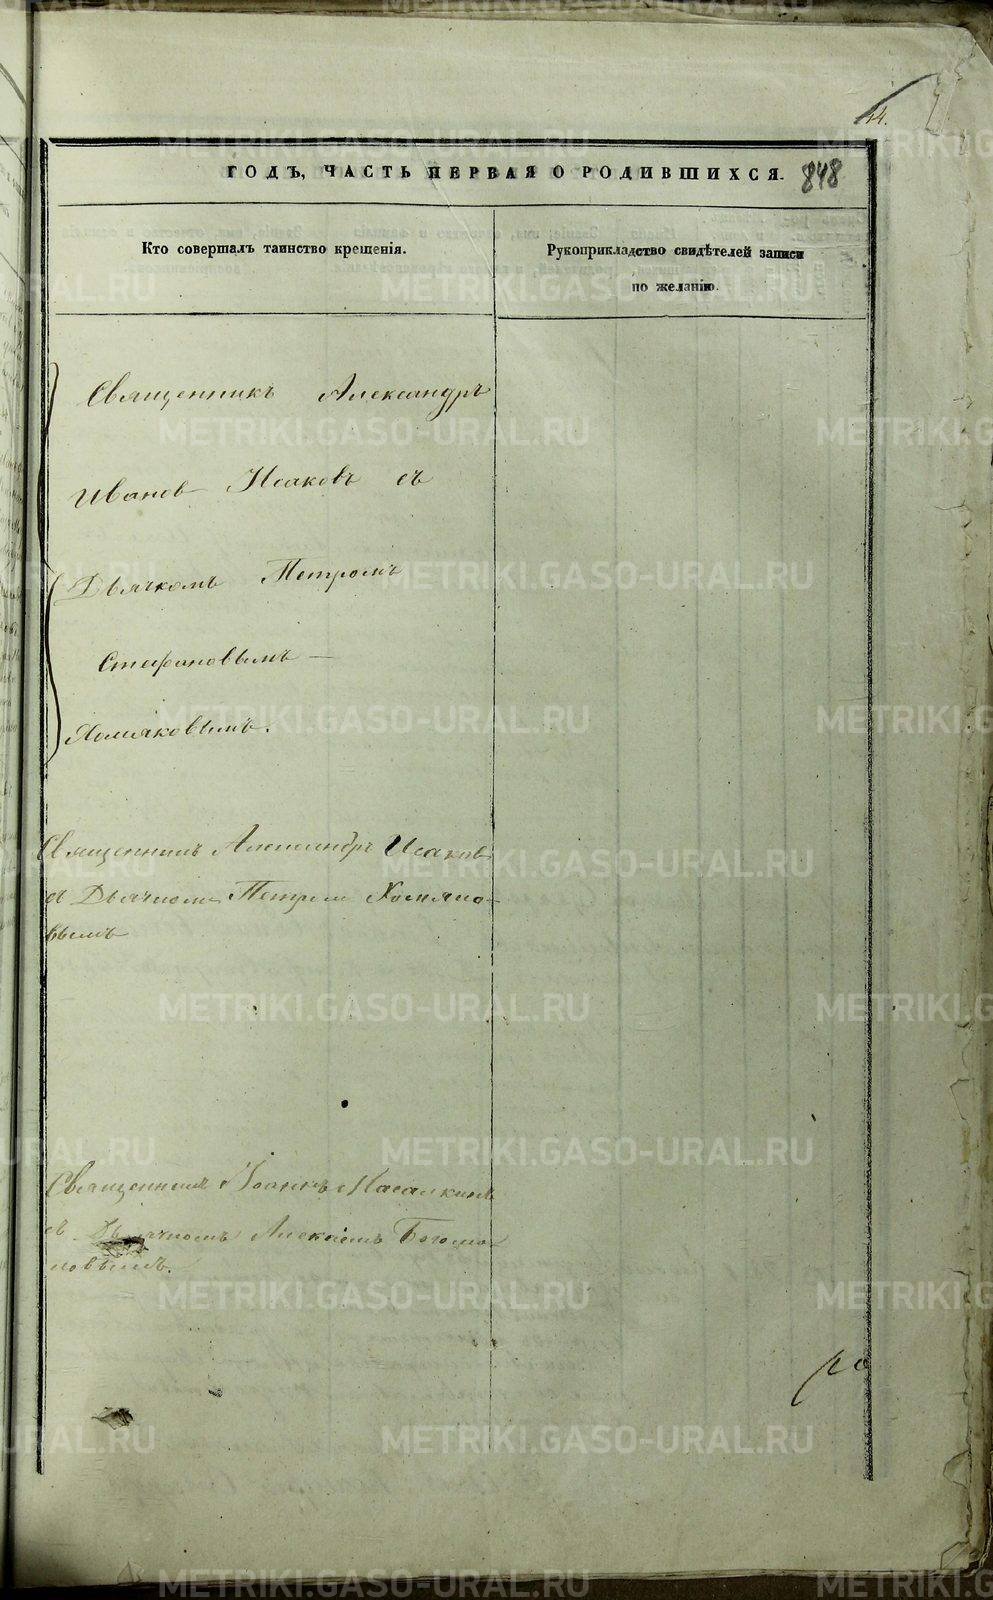 14.
ГОДЪ, ЧАСТЬ ПЕРВАЯ О РОДИВШИХСЯ.
848
Кто совершалъ таинство крещенія.
Рукоприкладство свидѣтелей записи
по желанію.
Священникъ Александръ
Иванов Исаковъ съ
Дьячкомъ Петромъ
Стефановымъ —
Хомяковымъ.
Священникъ Александръ Исаков
съ Дьячкомъ Петром Хомяко-
вымъ
Священникъ Іоаннъ Насалкинъ
съ Дьячкомъ Алексіемъ Богомо
ловымъ.
METRIKI.GASO-URAL.RU